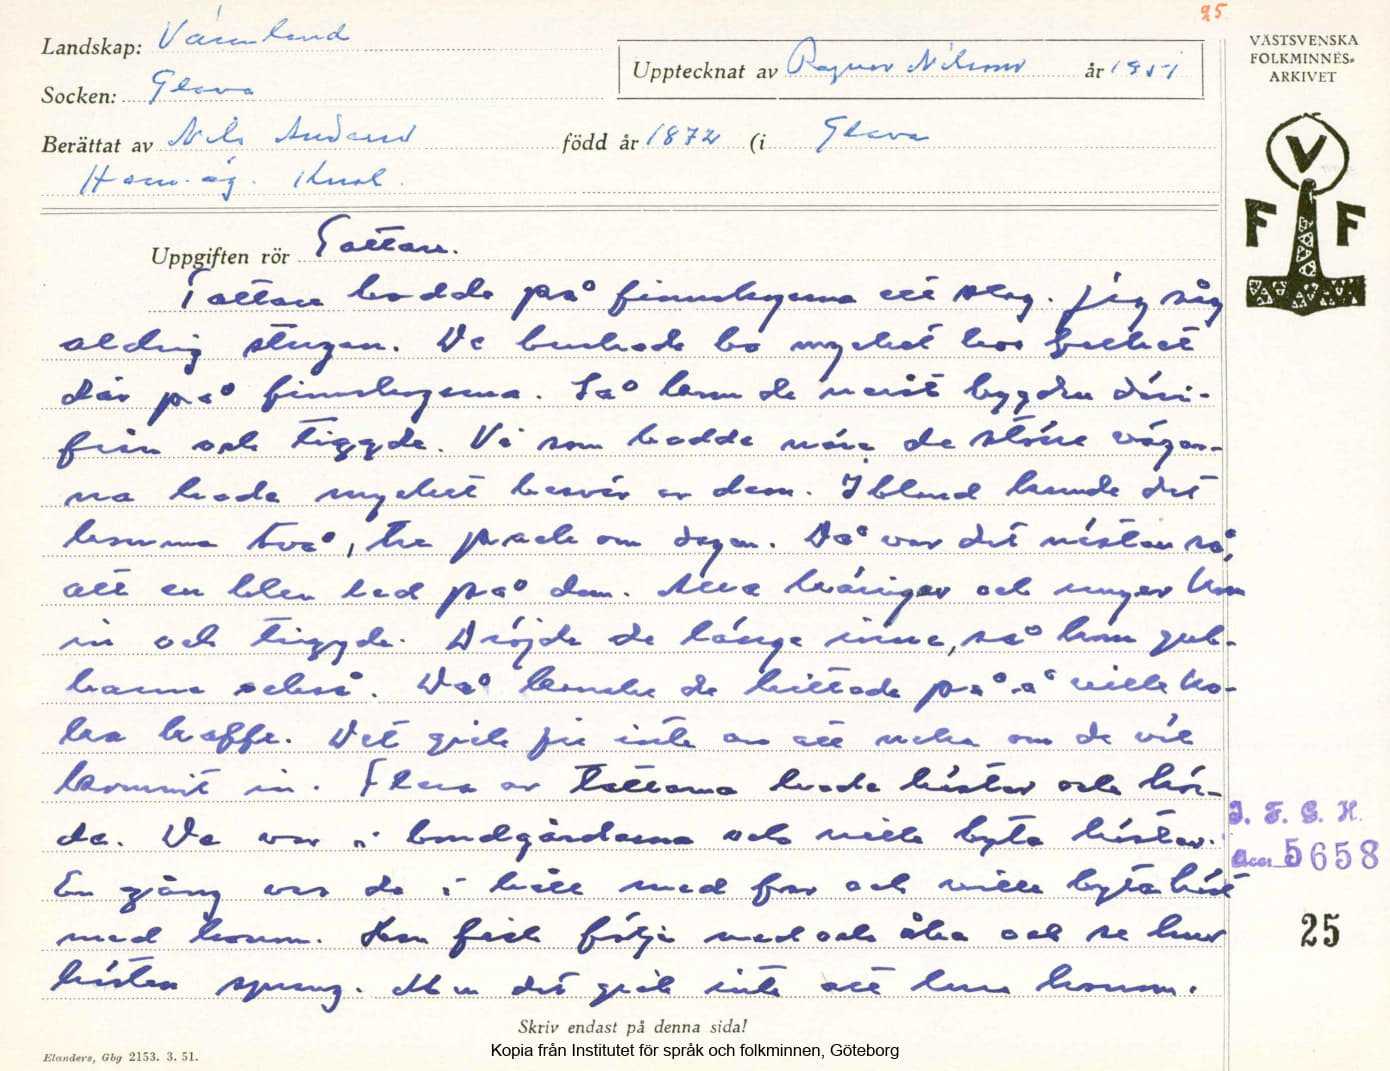 25
Landskap: Värmland
Upptecknat av Ragnar Nilsson år 1951
VÄSTSVENSKA
FOLKMINNES-
ARKIVET
Socken: Glava
Berättat av Nils född år 1872 (i Glava
Hem.äg.
V
F F
Uppgiften rör Tattare.
Tattare bodde på finnskogarna ett slag. Jag såg
aldrig stugan. De brukade bo mycket hos folket
där på finnskogarna. Så kom de neråt bygden däri-
från och tiggde. Vi som bodde nära de större vägar-
na hade mycket besvär av dem. Ibland kunde det
komma två, tre pack om dagen. Då var det nästan så,
att en blev led på dem. Alla käringar och ungar kom
in och tiggde. Dröjde de länge inne, så kom gub-
barna också. Då kanske de hittade på å ville ko-
ka kaffe. Det gick ju inte an att neka om de väl
kommit in. Flera av tattarna hade hästar och kör-
de. De var i bondgårdarna och ville byta hästar.
En gång var de i håll med far och ville byta häst
med honom. Han fick följa med och åka och se hur
hästen sprang. Men det gick inte att lura honom.
I. F. G. H.
Acc 5658
25
Skriv endast på denna sida!
Elanders, Gbg 2153. 3. 51.
Kopia från Institutet för språk och folkminnen, Göteborg